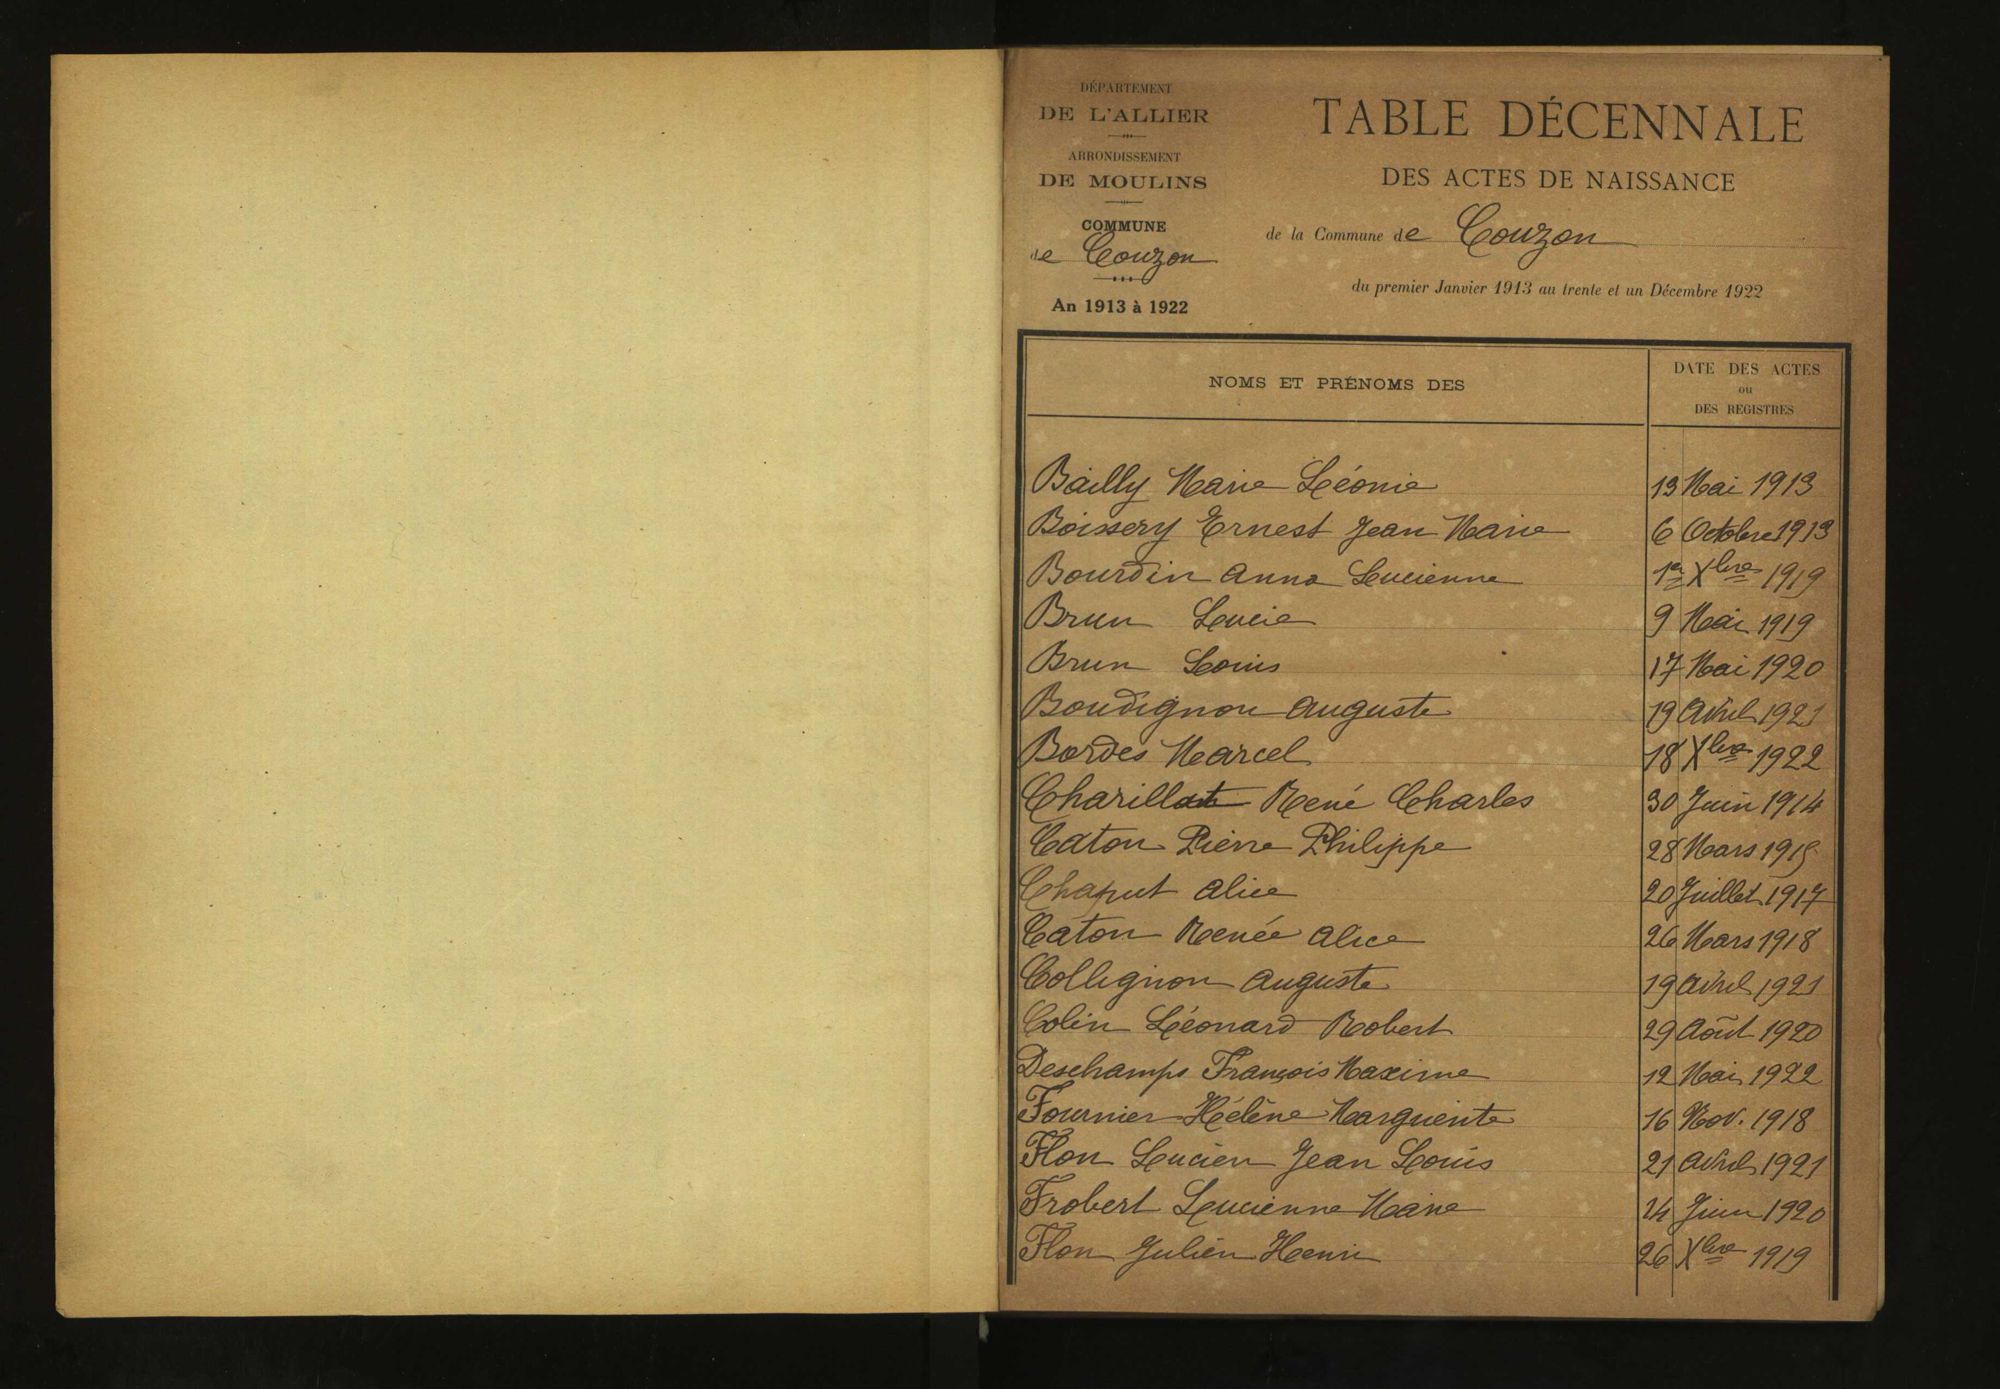 DÉPARTEMENT
DE L'ALLIER
ARRONDISSEMENT
DE MOULINS
COMMUNE
de Couzon
An 1913 à 1922
TABLE DÉCENNALE
DES ACTES DE NAISSANCE
de la Commune de Couzon
du premier Janvier 1913 au trente et un Décembre 1922
NOMS ET PRÉNOMS DES
DATE DES ACTES
ou
DES REGISTRES
Bailly Marie Léonie 13 Mai 1913
Boissery Ernest Jean Marie 6 Octobre 1913
Bourdin Anna Lucienne 1er Xbre 1919
Brun Lucie 9 Mai 1919
Brun Louis 17 Mai 1920
Boudignon Auguste 19 Avril 1921
Bordes Marcel 18 Xbre 1922
Charillat René Charles 30 Juin 1914
Caton Pierre Philippe 28 Mars 1915
Chaput Alice 20 Juillet 1917
Caton Renée Alice 26 Mars 1918
Collignon Auguste 19 Avril 1921
Colin Léonard Robert 29 Août 1920
Deschamps François Maxime 12 Mai 1922
Fournier Hélène Marguerite 16 Nov. 1918
Flon Lucien Jean Louis 21 Avril 1921
Frobert Lucienne Marie 24 Juin 1920
Flon Julien Henri 26 Xbre 1919